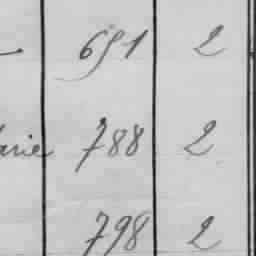 691 2
arie 788 2
798 2